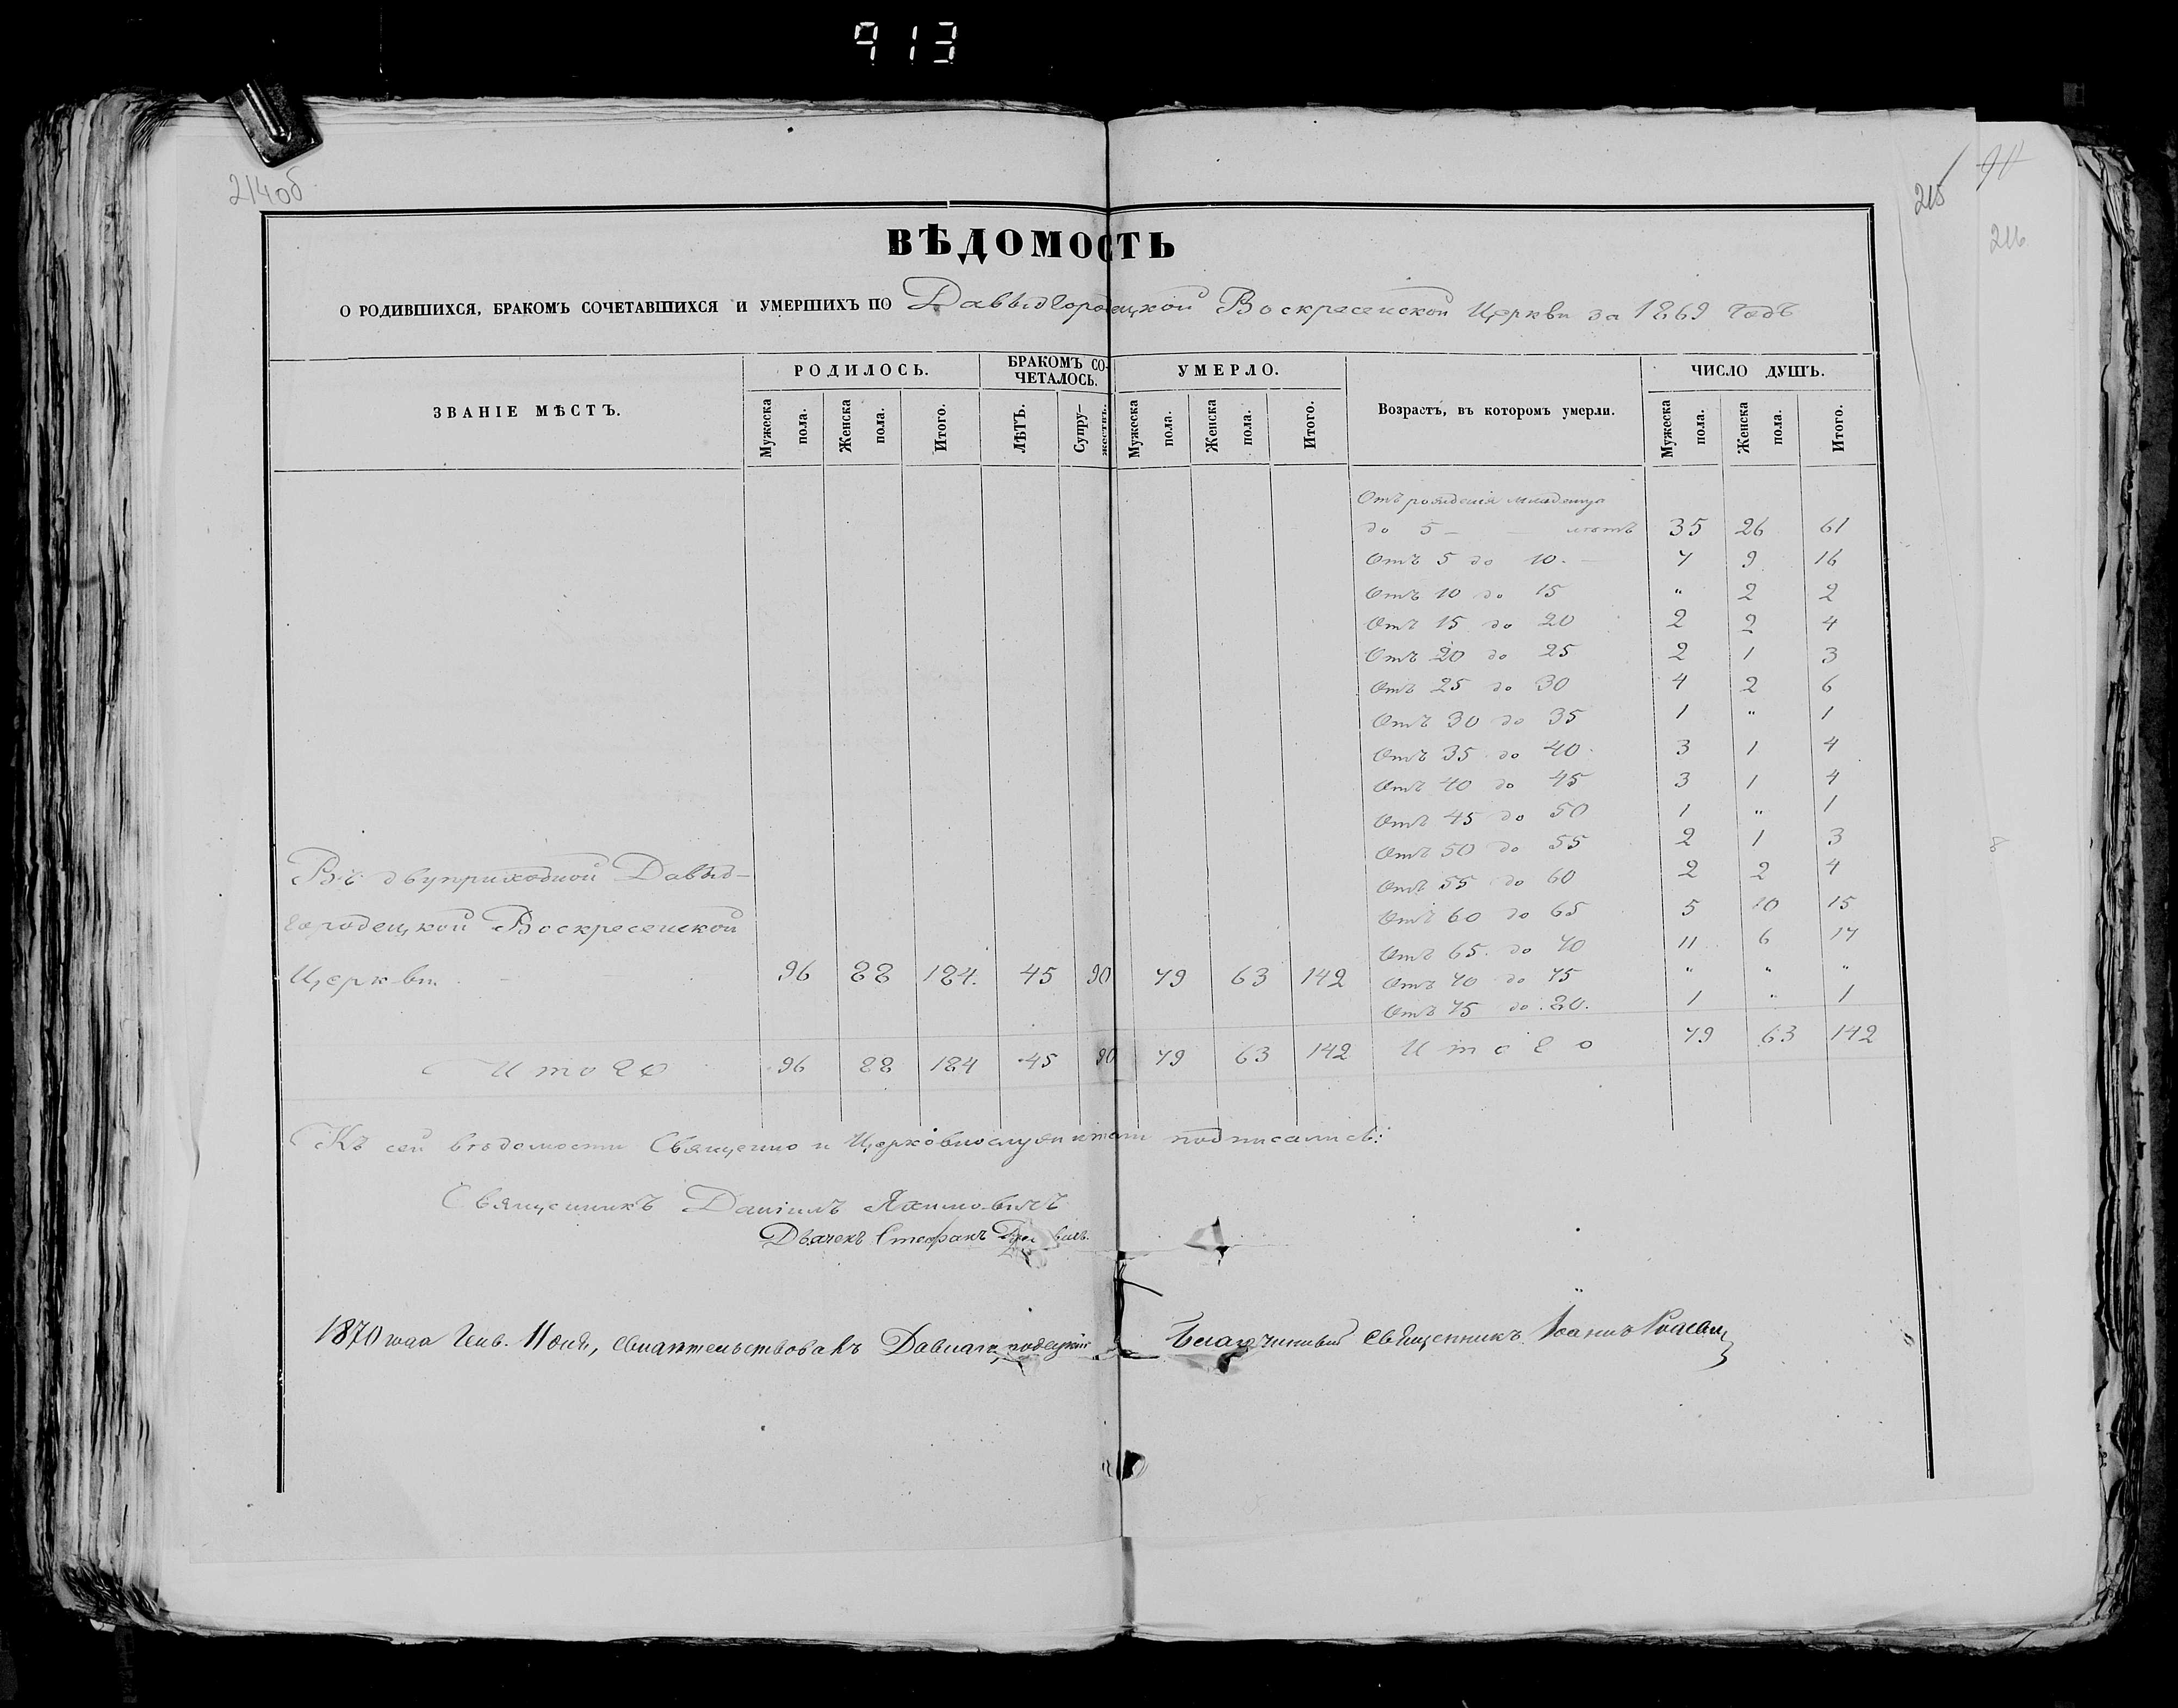 913
214об
215
216
ВѢДОМОСТЬ
О РОДИВШИХСЯ, БРАКОМЪ СОЧЕТАВШИХСЯ И УМЕРШИХЪ ПО Давыдгородецкой Воскресенской Церкви за 1869 годъ
ЗВАНІЕ МѢСТЪ.
РОДИЛОСЬ.
Мужеска пола.
Женска пола.
Итого.
БРАКОМЪ СО-
ЧЕТАЛОСЬ.
ЛѢТЪ.
Супру-
жествъ.
УМЕРЛО.
Мужеска пола.
Женска пола.
Итого.
Возрастъ, въ которомъ умерли.
ЧИСЛО ДУШЪ.
Мужеска пола.
Женска пола.
Итого.
Отъ рожденія младенца
до 5 — — лѣтъ 35 26 61
Отъ 5 до 10. — 7 9 16
Отъ 10 до 15 " 2 2
Отъ 15 до 20 2 2 4
Отъ 20 до 25 2 1 3
Отъ 25 до 30 4 2 6
Отъ 30 до 35 1 " 1
Отъ 35 до 40. 3 1 4
Отъ 40 до 45 3 1 4
Отъ 45 до 50 1 " 1
Отъ 50 до 55 2 1 3
Отъ 55 до 60 2 2 4
Отъ 60 до 65 5 10 15
Отъ 65. до 70 11 6 17
Отъ 70 до 75 " " "
Отъ 75 до 80. 1 " 1
Въ двуприходной Давыд-
городецкой Воскресенской
Церкви. 96 88 184. 45 90 79 63 142
Итого 96 88 184 45 90 79 63 142 Итого 79 63 142
Къ сей вѣдомости Священно и Церковнослужители подписались:
Священникъ Даніилъ Якимовичъ
Дьячекъ Стефанъ
1870 года Генв. 11 дня, свидѣтельствовалъ Давидгородецкій Благочинный Священникъ Іоаннъ